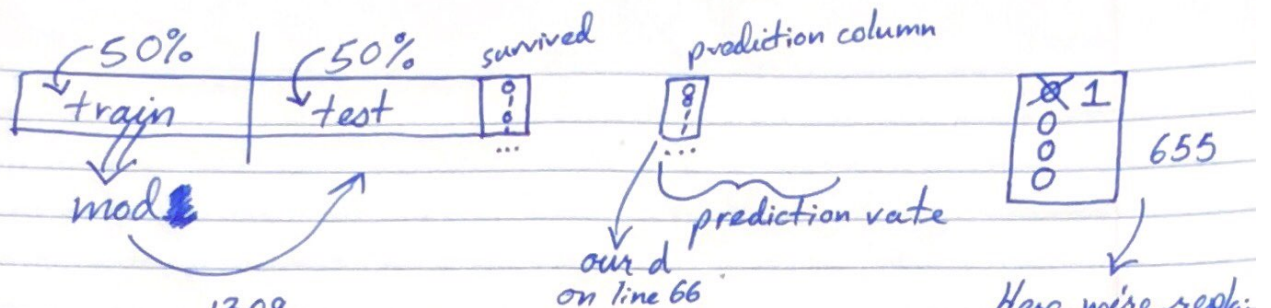 50% 50% survived prediction column
train test
0 1 0 1 ...
0 0 1 1 ...
0 1
0
0
0
655
mod
prediction rate
our d
on line 66
1309
Here we're repla